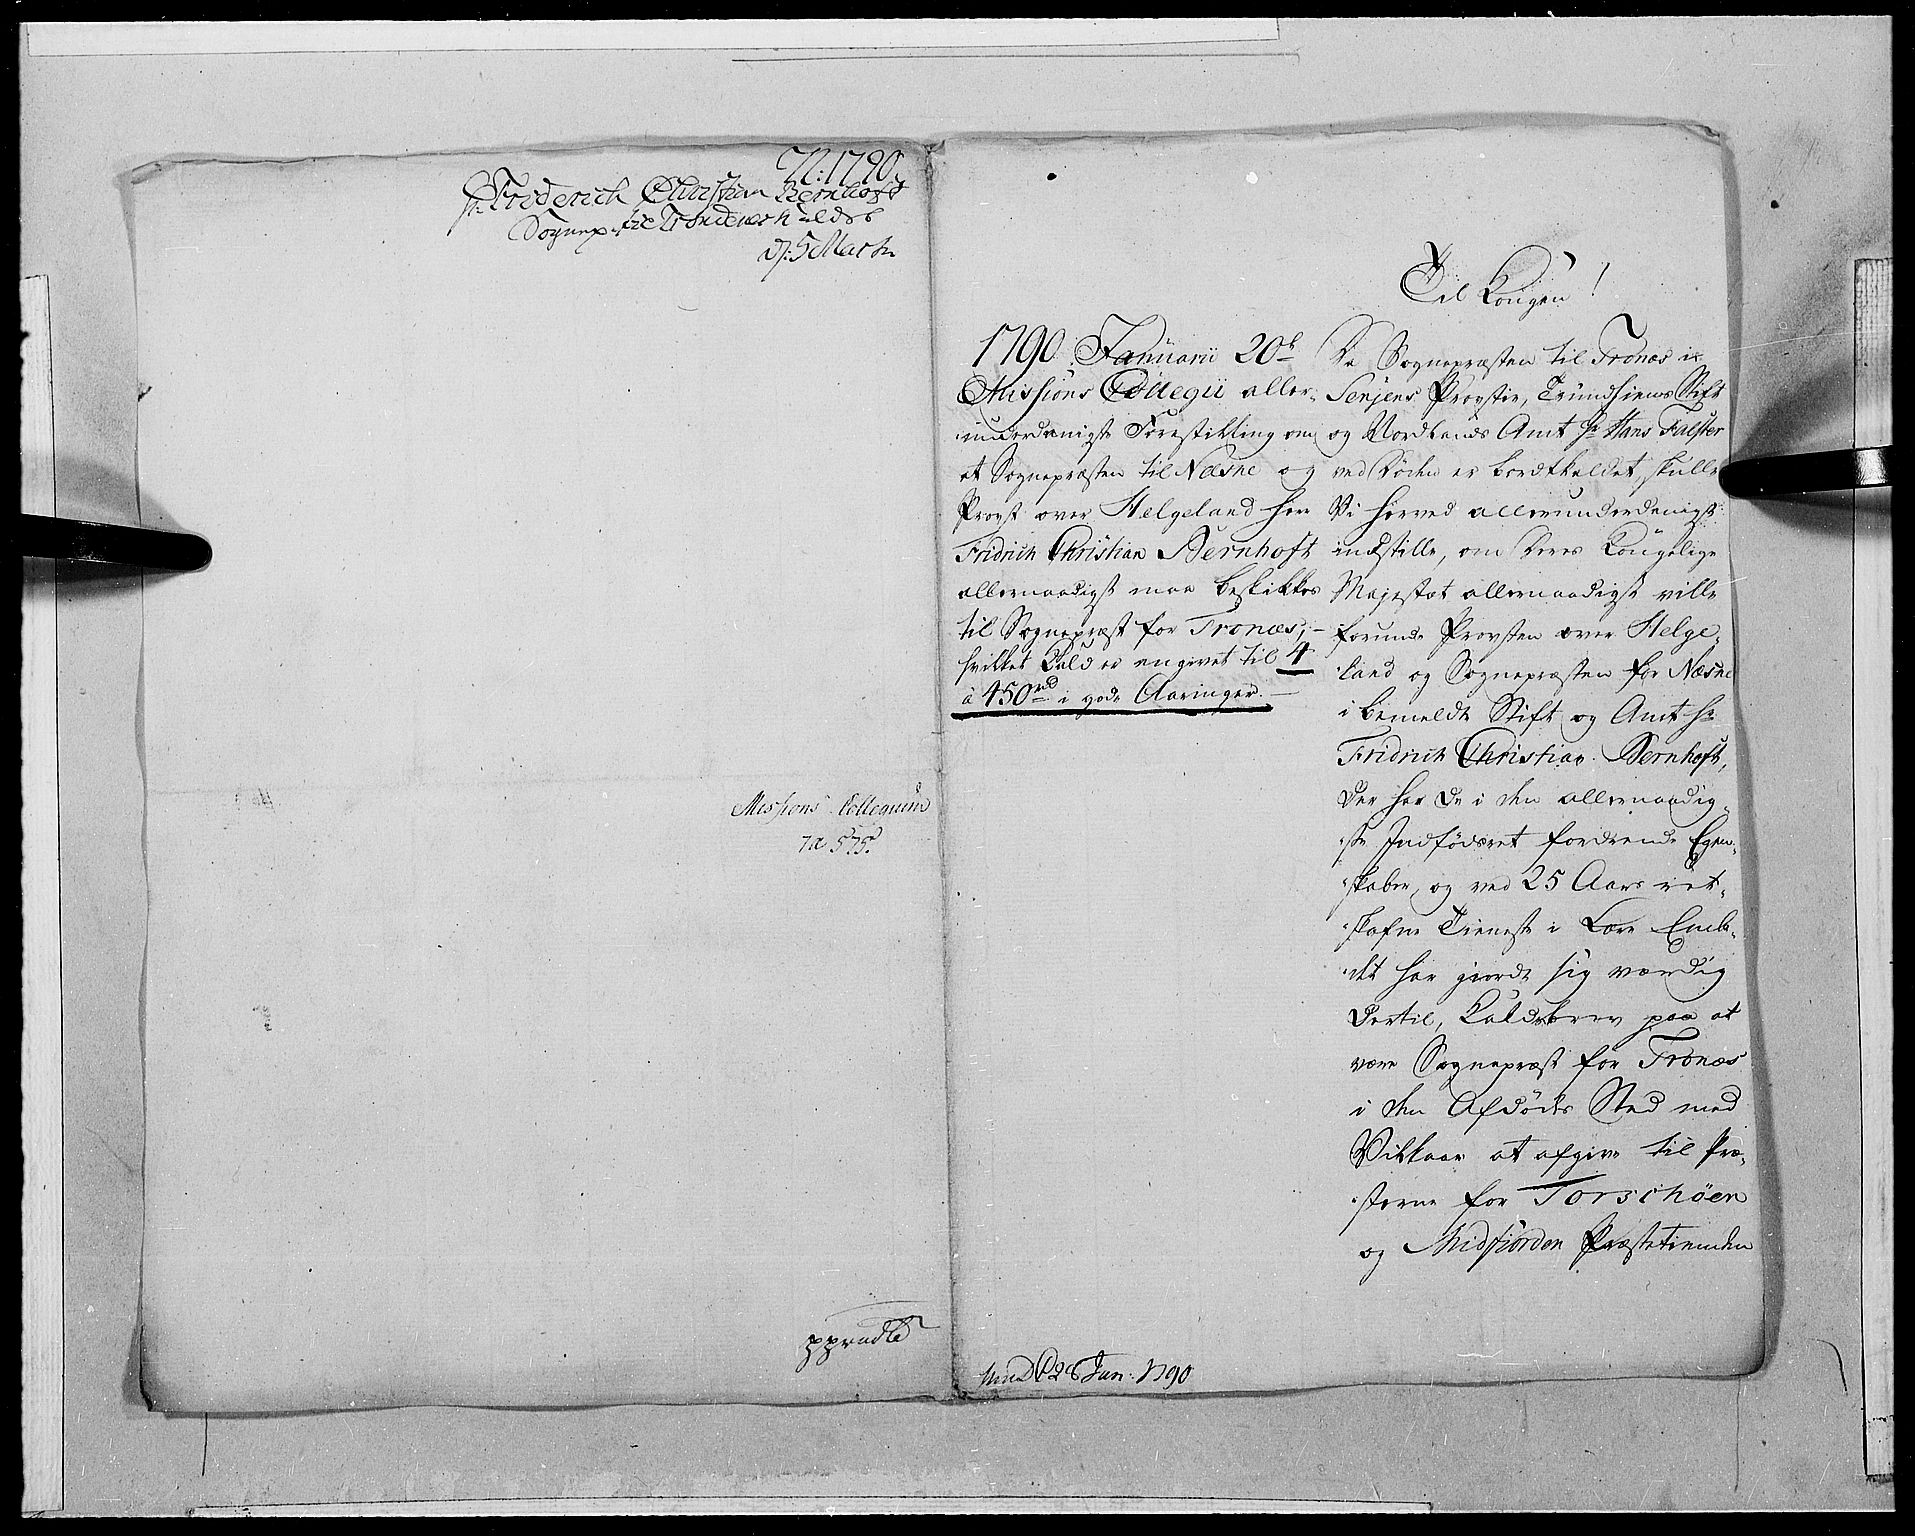 N: 1790.
Hr Friderich Christian Bernhoft
Sognep: til Trondenæs Kald
d: 5 Marti
Missions Collegium
No 575.
Til Kongen!
1790 Januarii 20de
Missions Collegii aller-
underdanigste Forestilling om
at Sognepræsten til Næsne og
Provst over Helgeland Herr
Fridrich Christian Bernhoft
allernaadigst maa beskikkes
til Sognepræst for Tronæs,
hvilket Kald er angivet til 4
à 450 rd i gode Aaringer.
Da Sognepræsten til Tronæs i
Senjens Provstie, Trundhiems Stift
og Nordlands Amt Hr Hans Falster
ved Døden er bortkaldet, skulle
Vi herved allerunderdanigst
indstille, om Deres Kongelige
Majestæt allernaadigst ville
forunde Provsten over Helge-
land og Sognepræsten for Næsne
i bemeldte Stift og Amt Hr
Fridrich Christian Bernhoft,
der har de i den allernaadig-
ste Indfødsret fordrende Egen-
skaber, og ved 25 Aars ret-
skafne Tieneste i Lære Embe-
det har giordt sig værdig
dertil, Kaldsbrev paa at
være Sognepræst for Tronæs
i den Afdødes Sted med
Vilkaar at afgive til Præ-
sterne for Torschöen
og Midfiorden Præstetienden
26 Jan: 1790